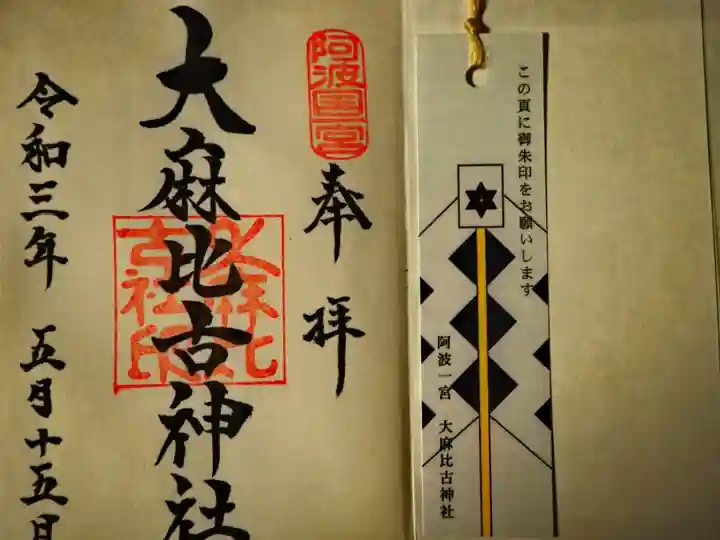 この頁に御朱印をお願いします
阿波一宮 大麻比古神社
阿波国一宮
奉拝
大麻比古神社
大麻比
古社印
令和三年 五月十五日